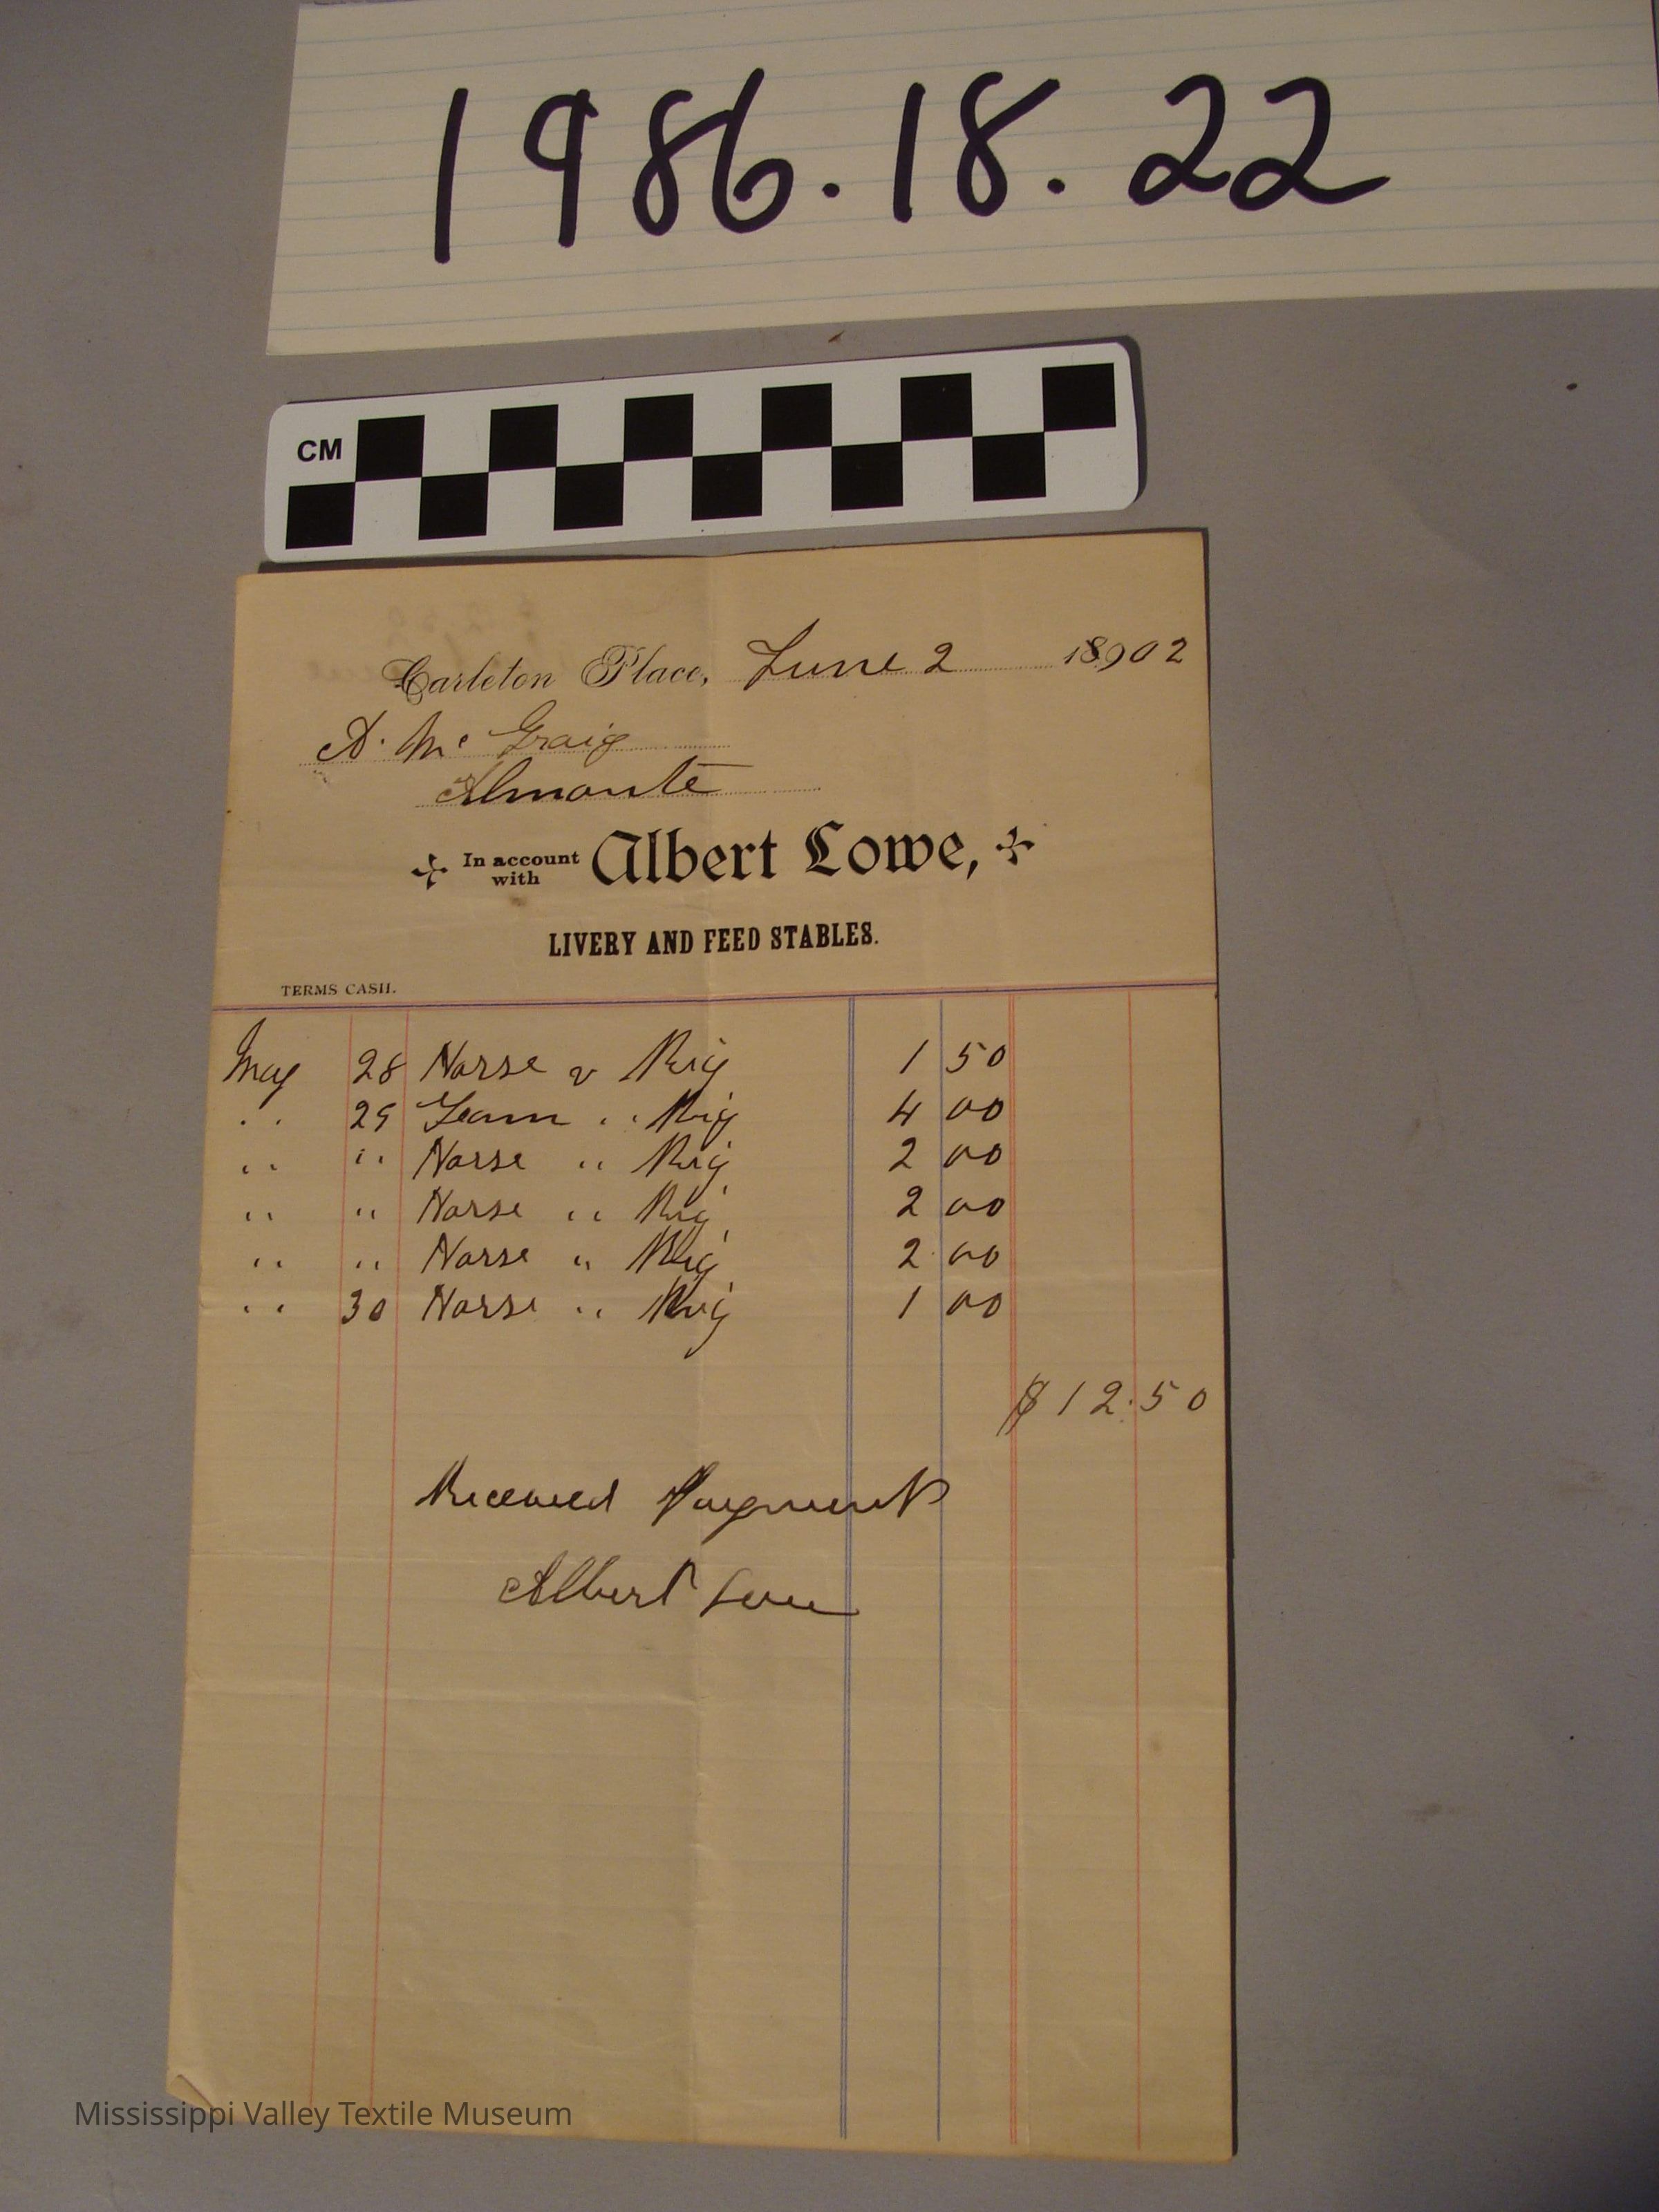 1986.18.22
CM
Carleton Place, June 2 18902
A. Mc Graig
Almonte
In account with Albert Lowe,
LIVERY AND FEED STABLES.
TERMS CASH.
May 28 Horse & Rig 1 50
" 29 Team " Rig 4 00
" " Horse " Rig 2 00
" " Horse " Rig 2 00
" " Horse " Rig 2 00
" 30 Horse " Rig 1 00
$12.50
Received Payment
Albert Lowe
Mississippi Valley Textile Museum